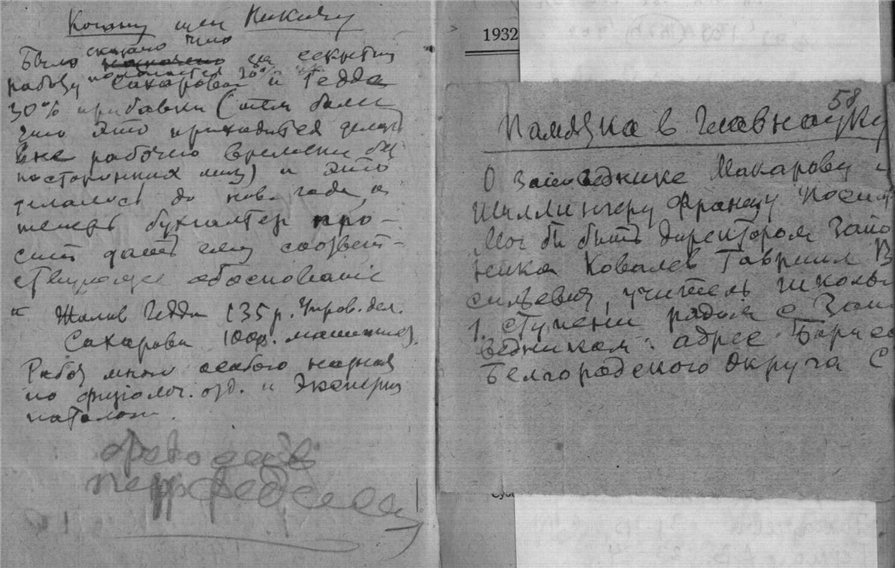 Когану или Никичу
Было сказано что за секретн
работу полагается 20% Сахаровой и Гедда
30% прибавки (
что это приходится делать
вне рабочего времени без
посторонних лиц) и это
делалось до нов. года, а
теперь бухгалтер про-
сит дать ему соответ-
ствующее обоснование
Жалов. Гедда 135 р.
Сахарова 100р. машинис.
Работ много особого
по физиолог. отд. и Эксперим
патолог.
1932
58
Памятка в Главнауку
О заповеднике Макарову и
Шиллингеру Францу Иосиф
Мог бы быть директором Запо
ника Ковалев Гавриил В
сильевич, учитель школы
1 ступени рядом с Запо
ведником: адрес Борисов
Белгородского Округа С